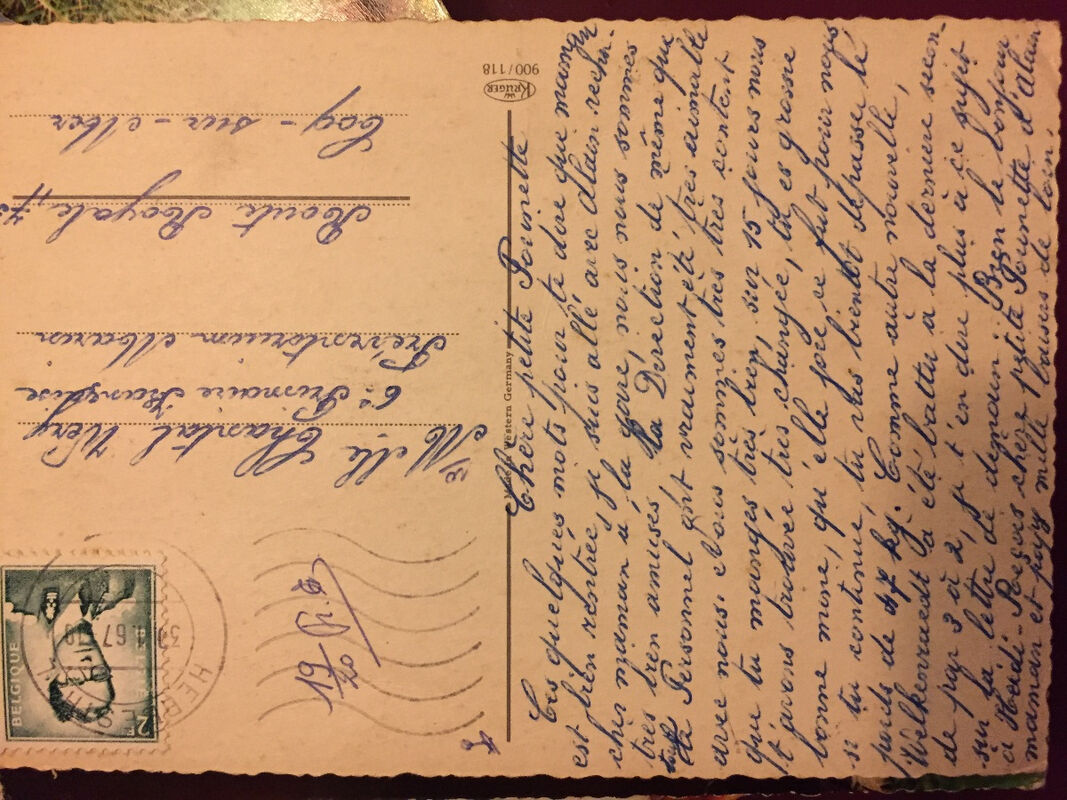 Chère petite Pounette
Ces quelques mots pour te dire que maman
est bien rentrée, je suis allé avec Alain recher-
cher maman à la gare, nous nous sommes
très bien amusés la Direction de même que
le Personnel ont vraiment été très aimable
avec nous. Nous sommes très très content
que tu manges très bien, sur 15 jours nous
t'avons trouvée très changée, tu es grosse
bonne mine, qu'elle joie ce fut pour nous
si tu continue, tu vas bientôt dépassé le
poids de 47 kg. Comme autre nouvelle,
Welkenraedt a été battu à la dernière secon-
de par 3 à 2, je t'en dire plus à ce sujet
sur la lettre de demain. Bien le bonjour
à Heidi. Reçois chère petite Pounette d'Alain
maman et papy mille baisers de loin.
KRÜGER
900/118
Made in Western Germany
BELGIQUE
2F
67
Melle Chantal Nery
6e Primaire Française
Préventorium Marin
Route Royale 75
Coq-sur-Mer